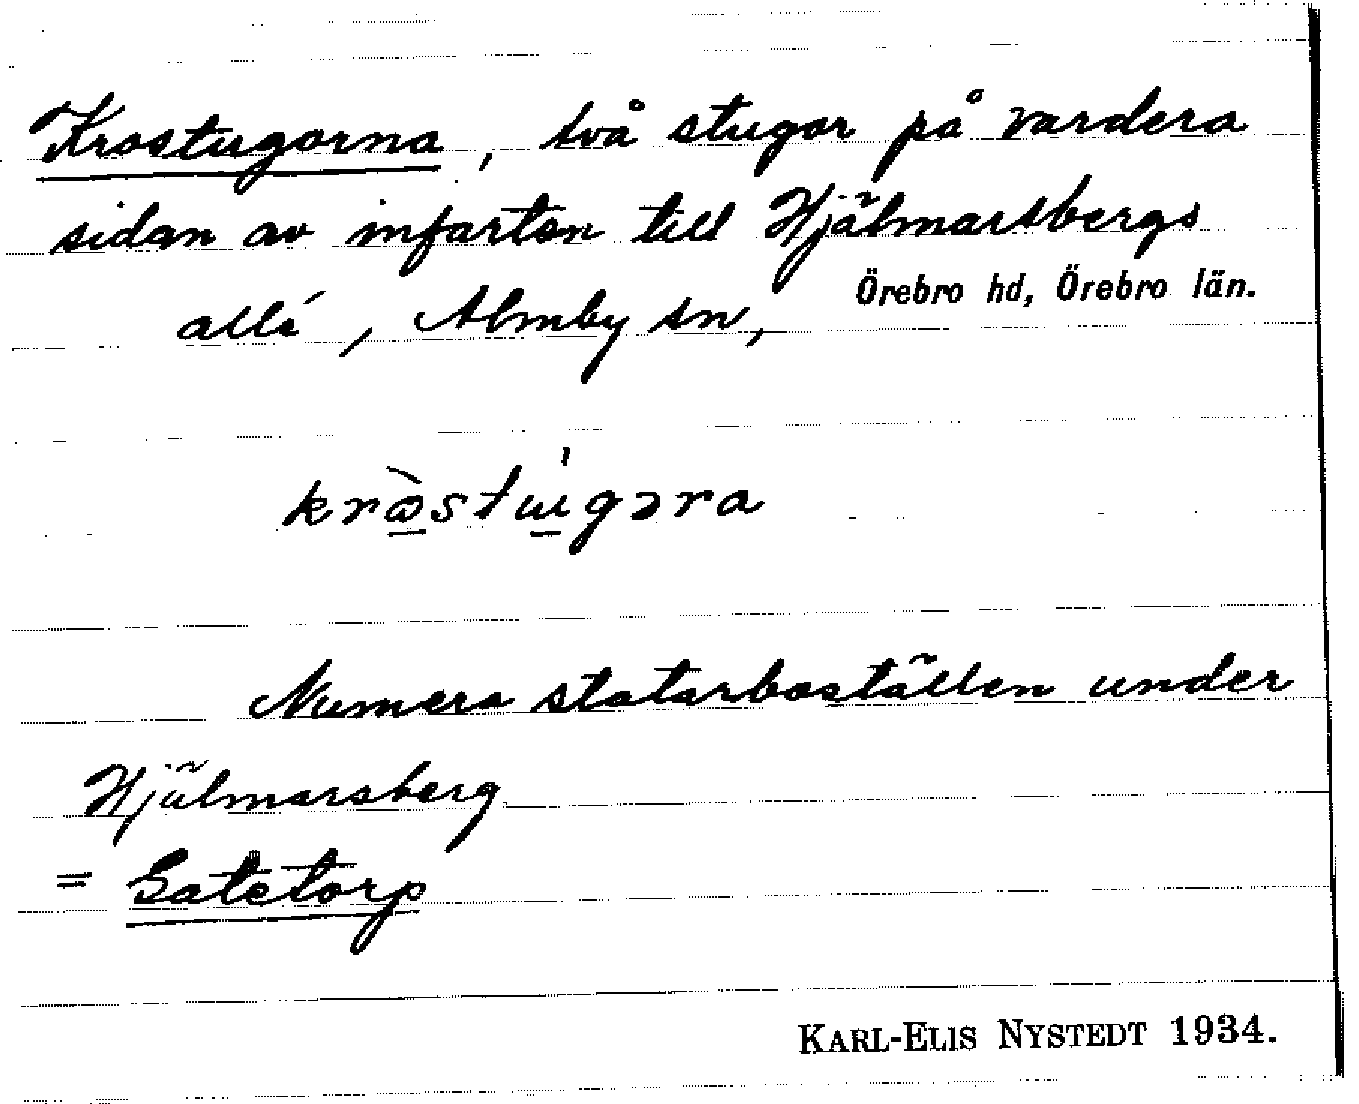 Krostugorna, två stugor på vardera
sidan av infarten till Hjälmarsbergs
allé, Almby sn, Örebro hd, Örebro län.
krɷ̀stɯ́gəra
Numera statarboställen under
Hjälmarsberg
= Gatetorp
KARL-ELIS NYSTEDT 1934.